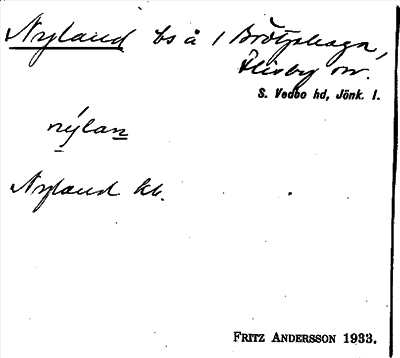 Nyland bs å 1 Brötjehagen,
Flisby sn.
S. Vedbo hd, Jönk. l.
nýlan
Nyland kb.
FRITZ ANDERSSON 1933.